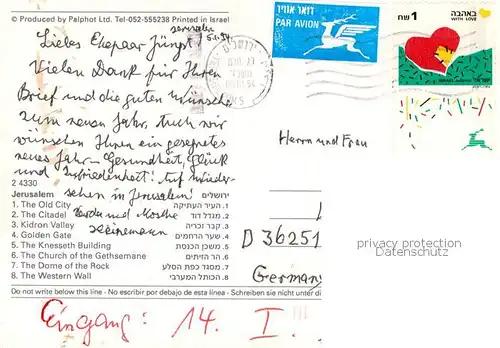 © Produced by Palphot Ltd. Tel-052-555238 Printed in Israel
Jerusalem
5.1.94
Liebes Ehepaar Jüngst!
Vielen Dank für Ihren
Brief und die guten Wünsche
zum neuen Jahr. Auch wir
wünschen Ihnen ein gesegnetes
neues Jahr – Gesundheit, Glück
und Zufriedenheit! Auf Wieder-
sehen in Jerusalem!
und Moshe
Heinemann
2 4330
Jerusalem ירושלים
1. The Old City 1. העיר העתיקה
2. The Citadel 2. מגדל דוד
3. Kidron Valley 3. קבר זכריה
4. Golden Gate 4. שער הרחמים
5. The Knesseth Building 5. משכן הכנסת
6. The Church of the Gethsemane 6. הר הזיתים
7. The Dome of the Rock 7. מסגד כפת הסלע
8. The Western Wall 8. הכותל המערבי
Do not write below this line - No escribir por debajo de esta linea - Schreiben sie nicht unter di
Eingang: 14. I.
דואר אויר
PAR AVION
1 שח
באהבה
WITH LOVE
ISRAEL
Herrn und Frau
D 36251
Germany
privacy protection
Datenschutz